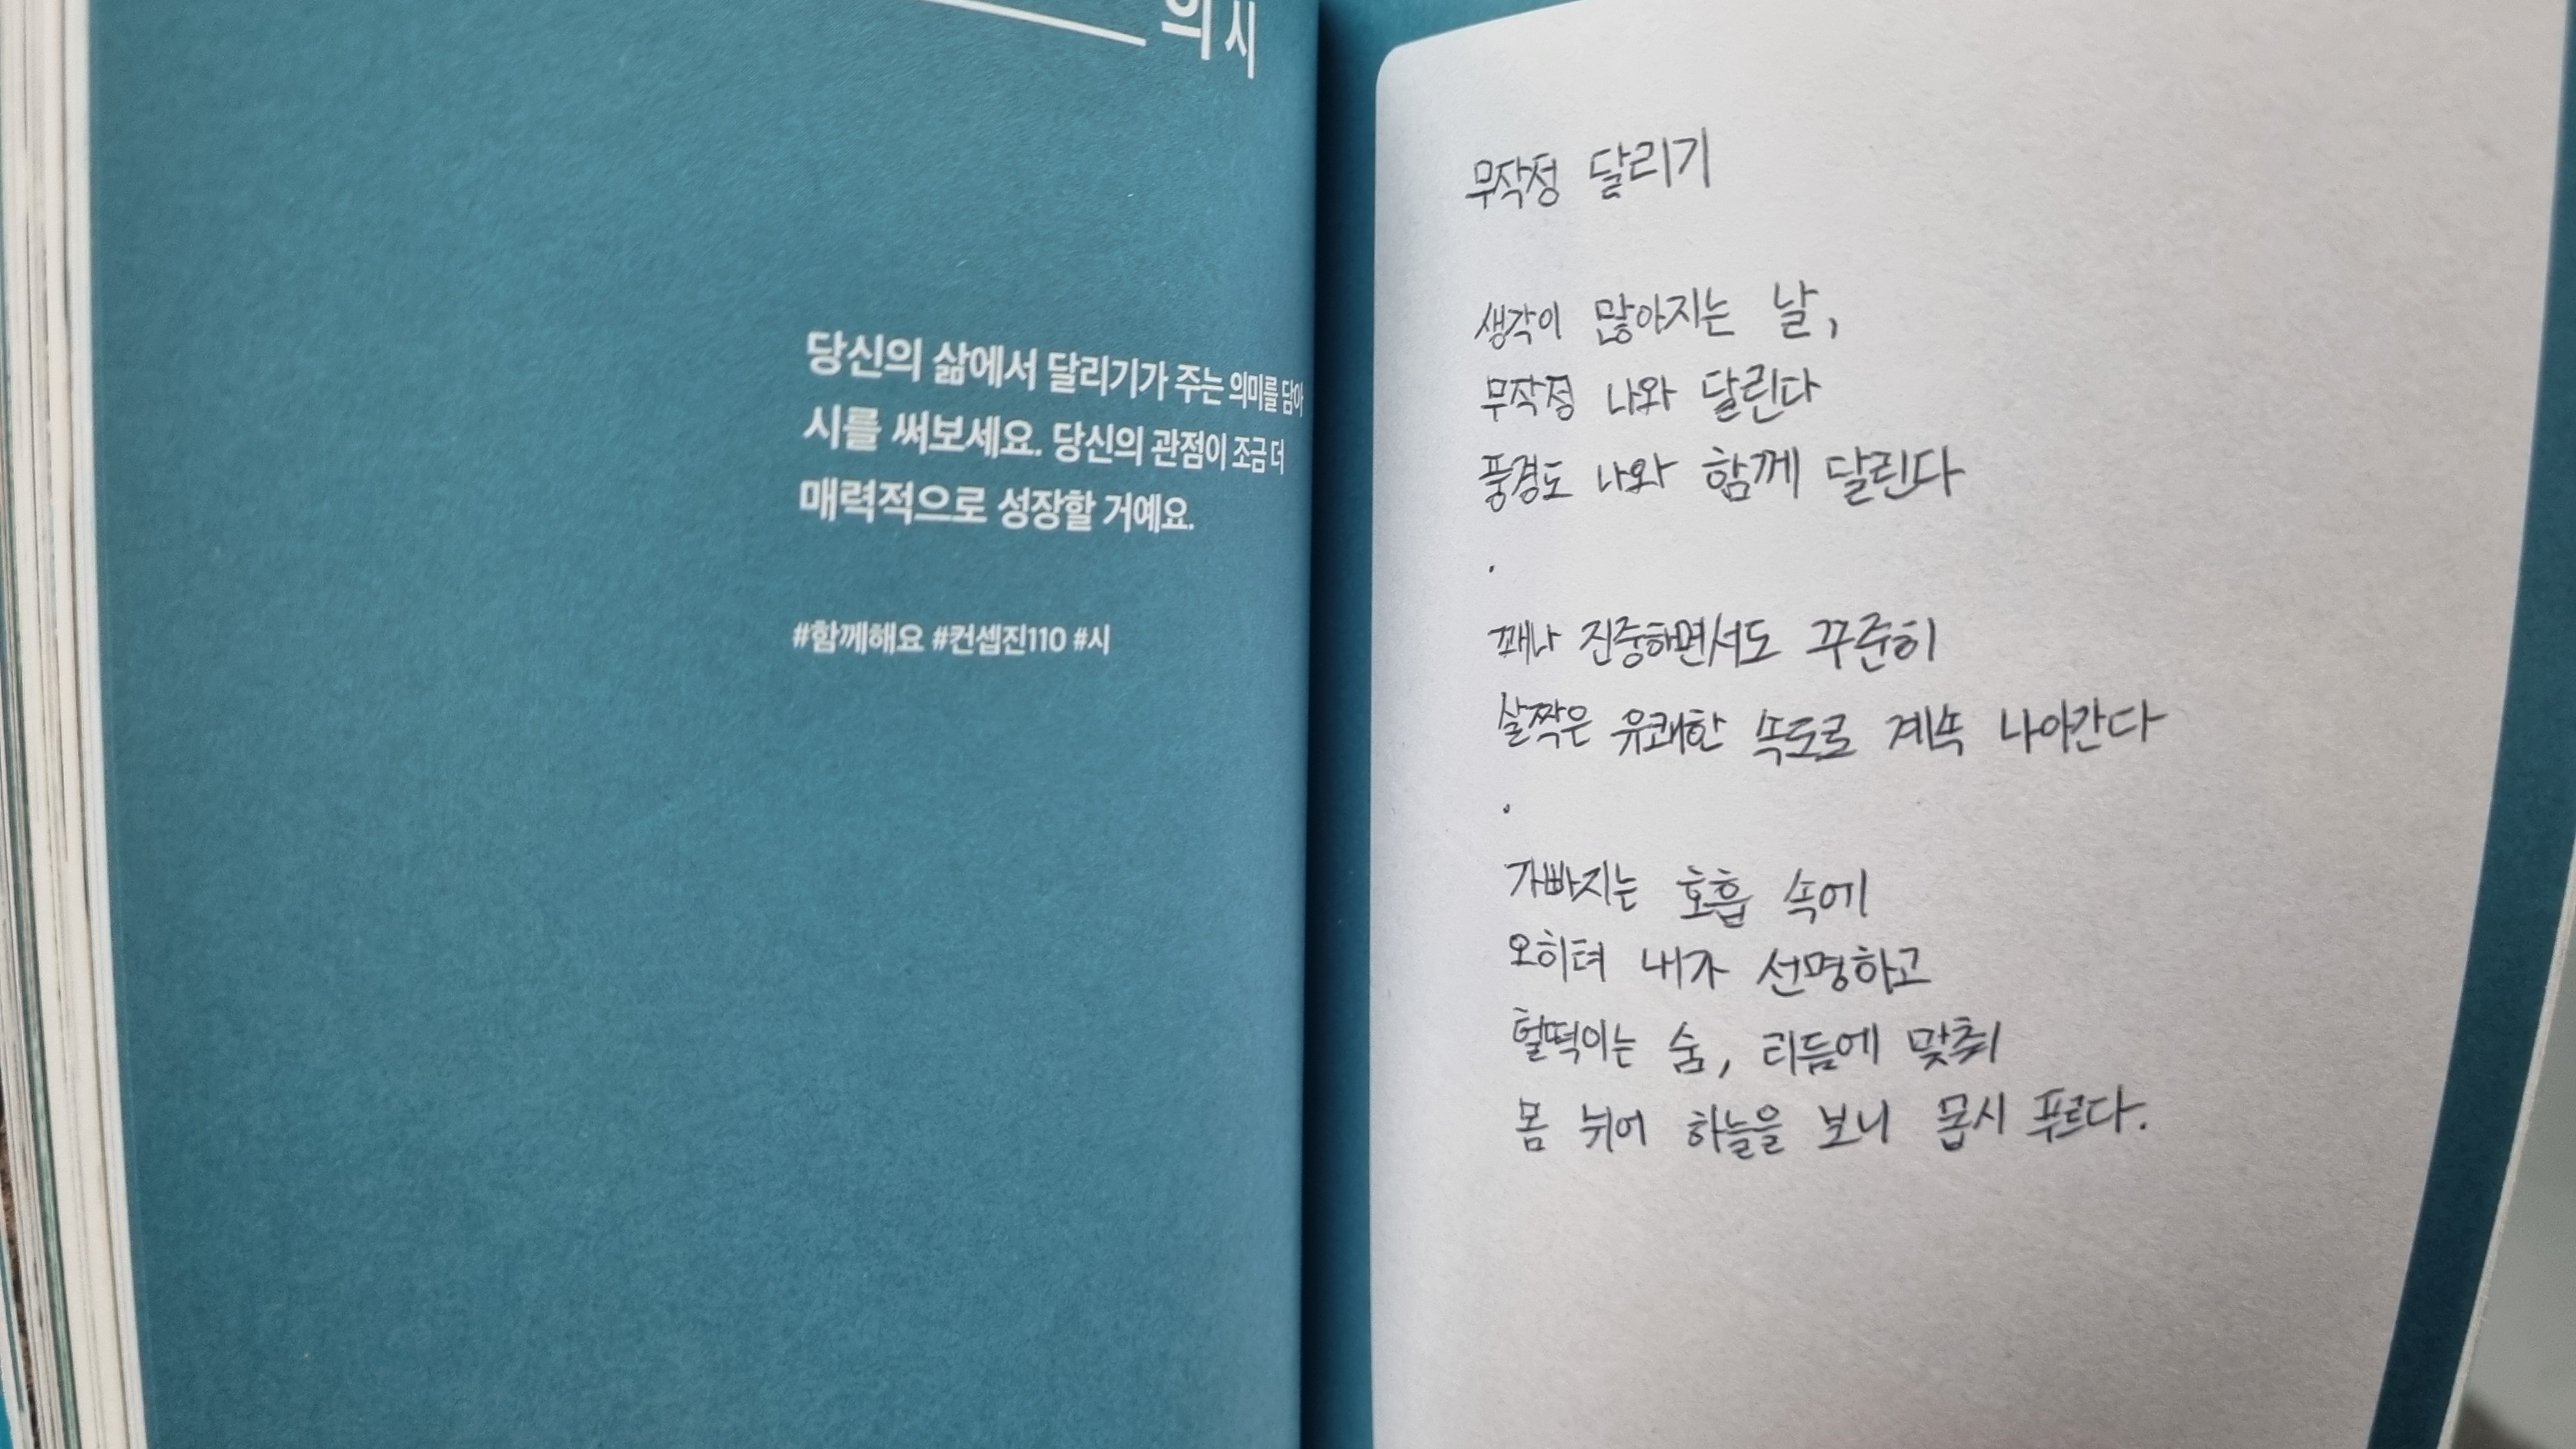 의 시
당신의 삶에서 달리기가 주는 의미를 담아
시를 써보세요. 당신의 관점이 조금 더
매력적으로 성장할 거예요.
#함께해요 #컨셉진110 #시
무작정 달리기
생각이 많아지는 날,
무작정 나와 달린다
풍경도 나와 함께 달린다
.
꽤나 진중하면서도 꾸준히
살짝은 유쾌한 속도로 계속 나아간다
.
가빠지는 호흡 속에
오히려 내가 선명하고
헐떡이는 숨, 리듬에 맞춰
몸 뉘어 하늘을 보니 몹시 푸르다.